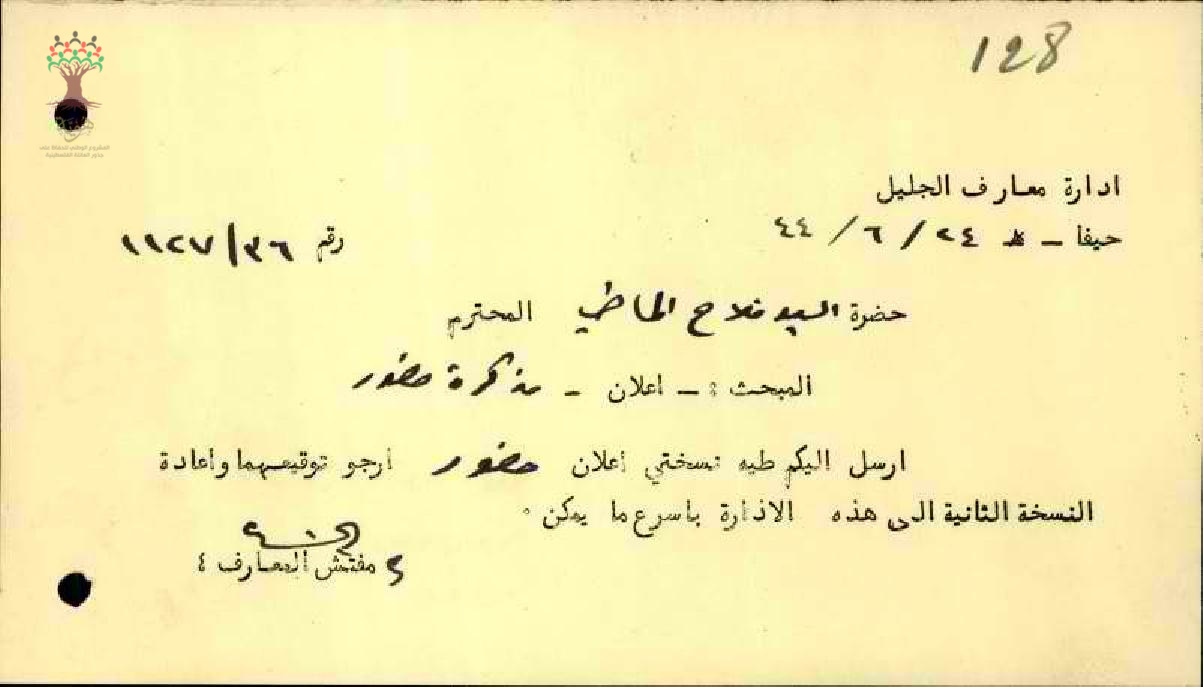 128
ادارة معارف الجليل
حيفا - ٢٤ / ٦ / ٤٤
رقم ٣٦/١١٢٧
حضرة السيد فلاح الماضي المحترم
المبحث :- اعلان - مذكرة حضور
ارسل اليكم طيه نسختي اعلان حضور ارجو توقيعهما واعادة
النسخة الثانية الى هذه الادارة باسرع ما يمكن ٠
مفتش المعارف ٤
المشروع الوطني للحفاظ على
جذور العائلة الفلسطينية